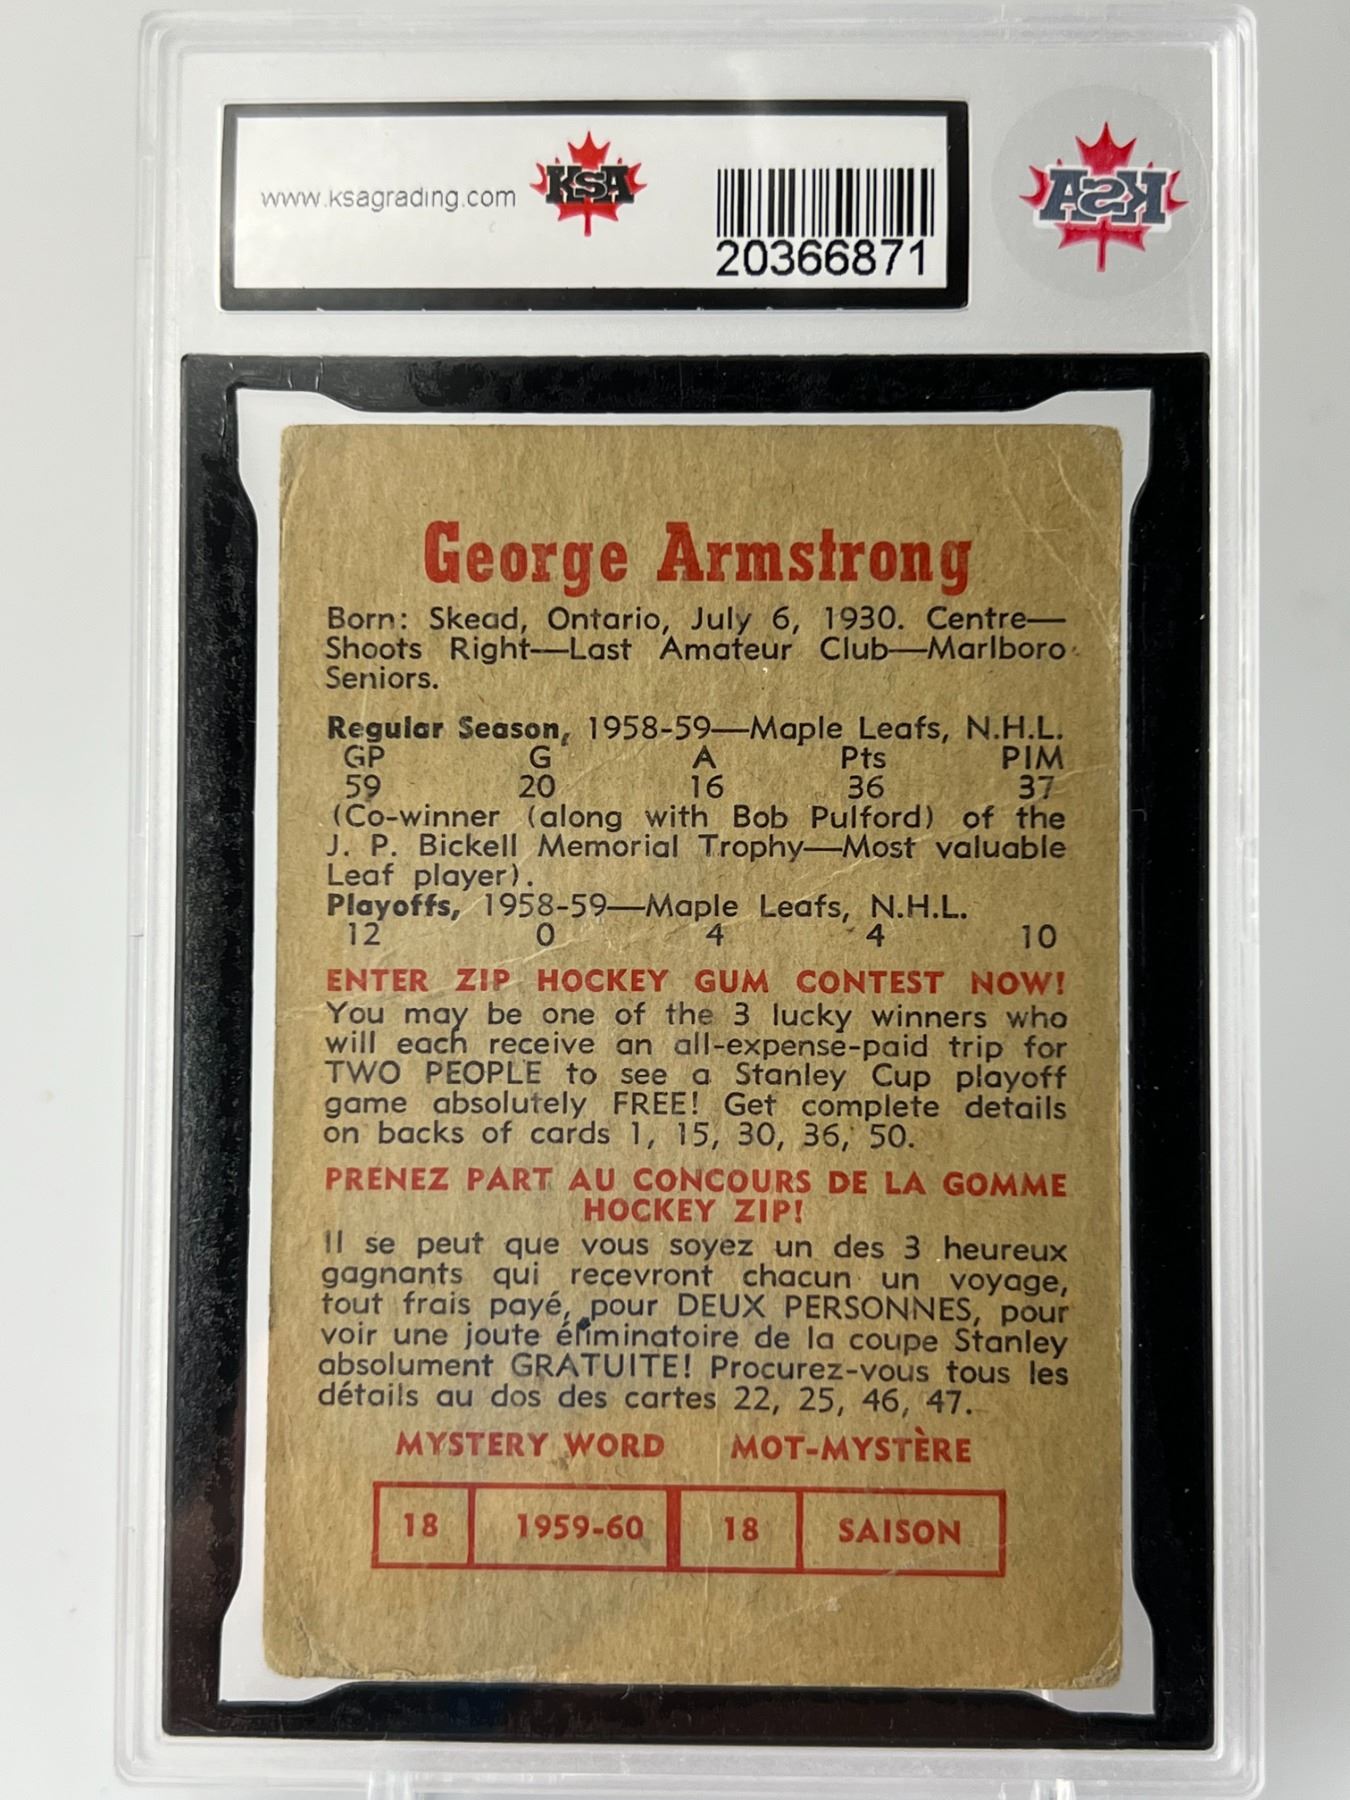 www.ksagrading.com KSA
20366871
KSA
George Armstrong
Born: Skead, Ontario, July 6, 1930. Centre—
Shoots Right—Last Amateur Club—Marlboro
Seniors.
Regular Season, 1958-59—Maple Leafs, N.H.L.
GP G A Pts PIM
59 20 16 36 37
(Co-winner (along with Bob Pulford) of the
J. P. Bickell Memorial Trophy—Most valuable
Leaf player).
Playoffs, 1958-59—Maple Leafs, N.H.L.
12 0 4 4 10
ENTER ZIP HOCKEY GUM CONTEST NOW!
You may be one of the 3 lucky winners who
will each receive an all-expense-paid trip for
TWO PEOPLE to see a Stanley Cup playoff
game absolutely FREE! Get complete details
on backs of cards 1, 15, 30, 36, 50.
PRENEZ PART AU CONCOURS DE LA GOMME
HOCKEY ZIP!
Il se peut que vous soyez un des 3 heureux
gagnants qui recevront chacun un voyage,
tout frais payé, pour DEUX PERSONNES, pour
voir une joute éliminatoire de la coupe Stanley
absolument GRATUITE! Procurez-vous tous les
détails au dos des cartes 22, 25, 46, 47.
MYSTERY WORD MOT-MYSTÈRE
18 1959-60 18 SAISON